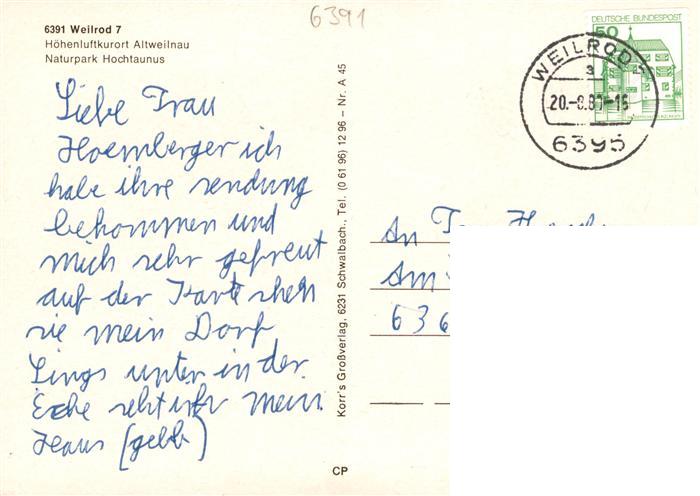 6391
6391 Weilrod 7
Höhenluftkurort Altweilnau
Naturpark Hochtaunus
Liebe Frau
Hoemberger ich
habe ihre sendung
bekommen und
mich sehr gefreut
auf der Karte shen
sie mein Dorf
Lings unten in der
Ecke seht ihr mein
Haus (gelb)
Korr's Großverlag, 6231 Schwalbach, Tel. (0 61 96) 12 96 – Nr. A 45
CP
DEUTSCHE BUNDESPOST
50
WEILROD 1
20.-8.80-16
6395
An Frau
Am
636